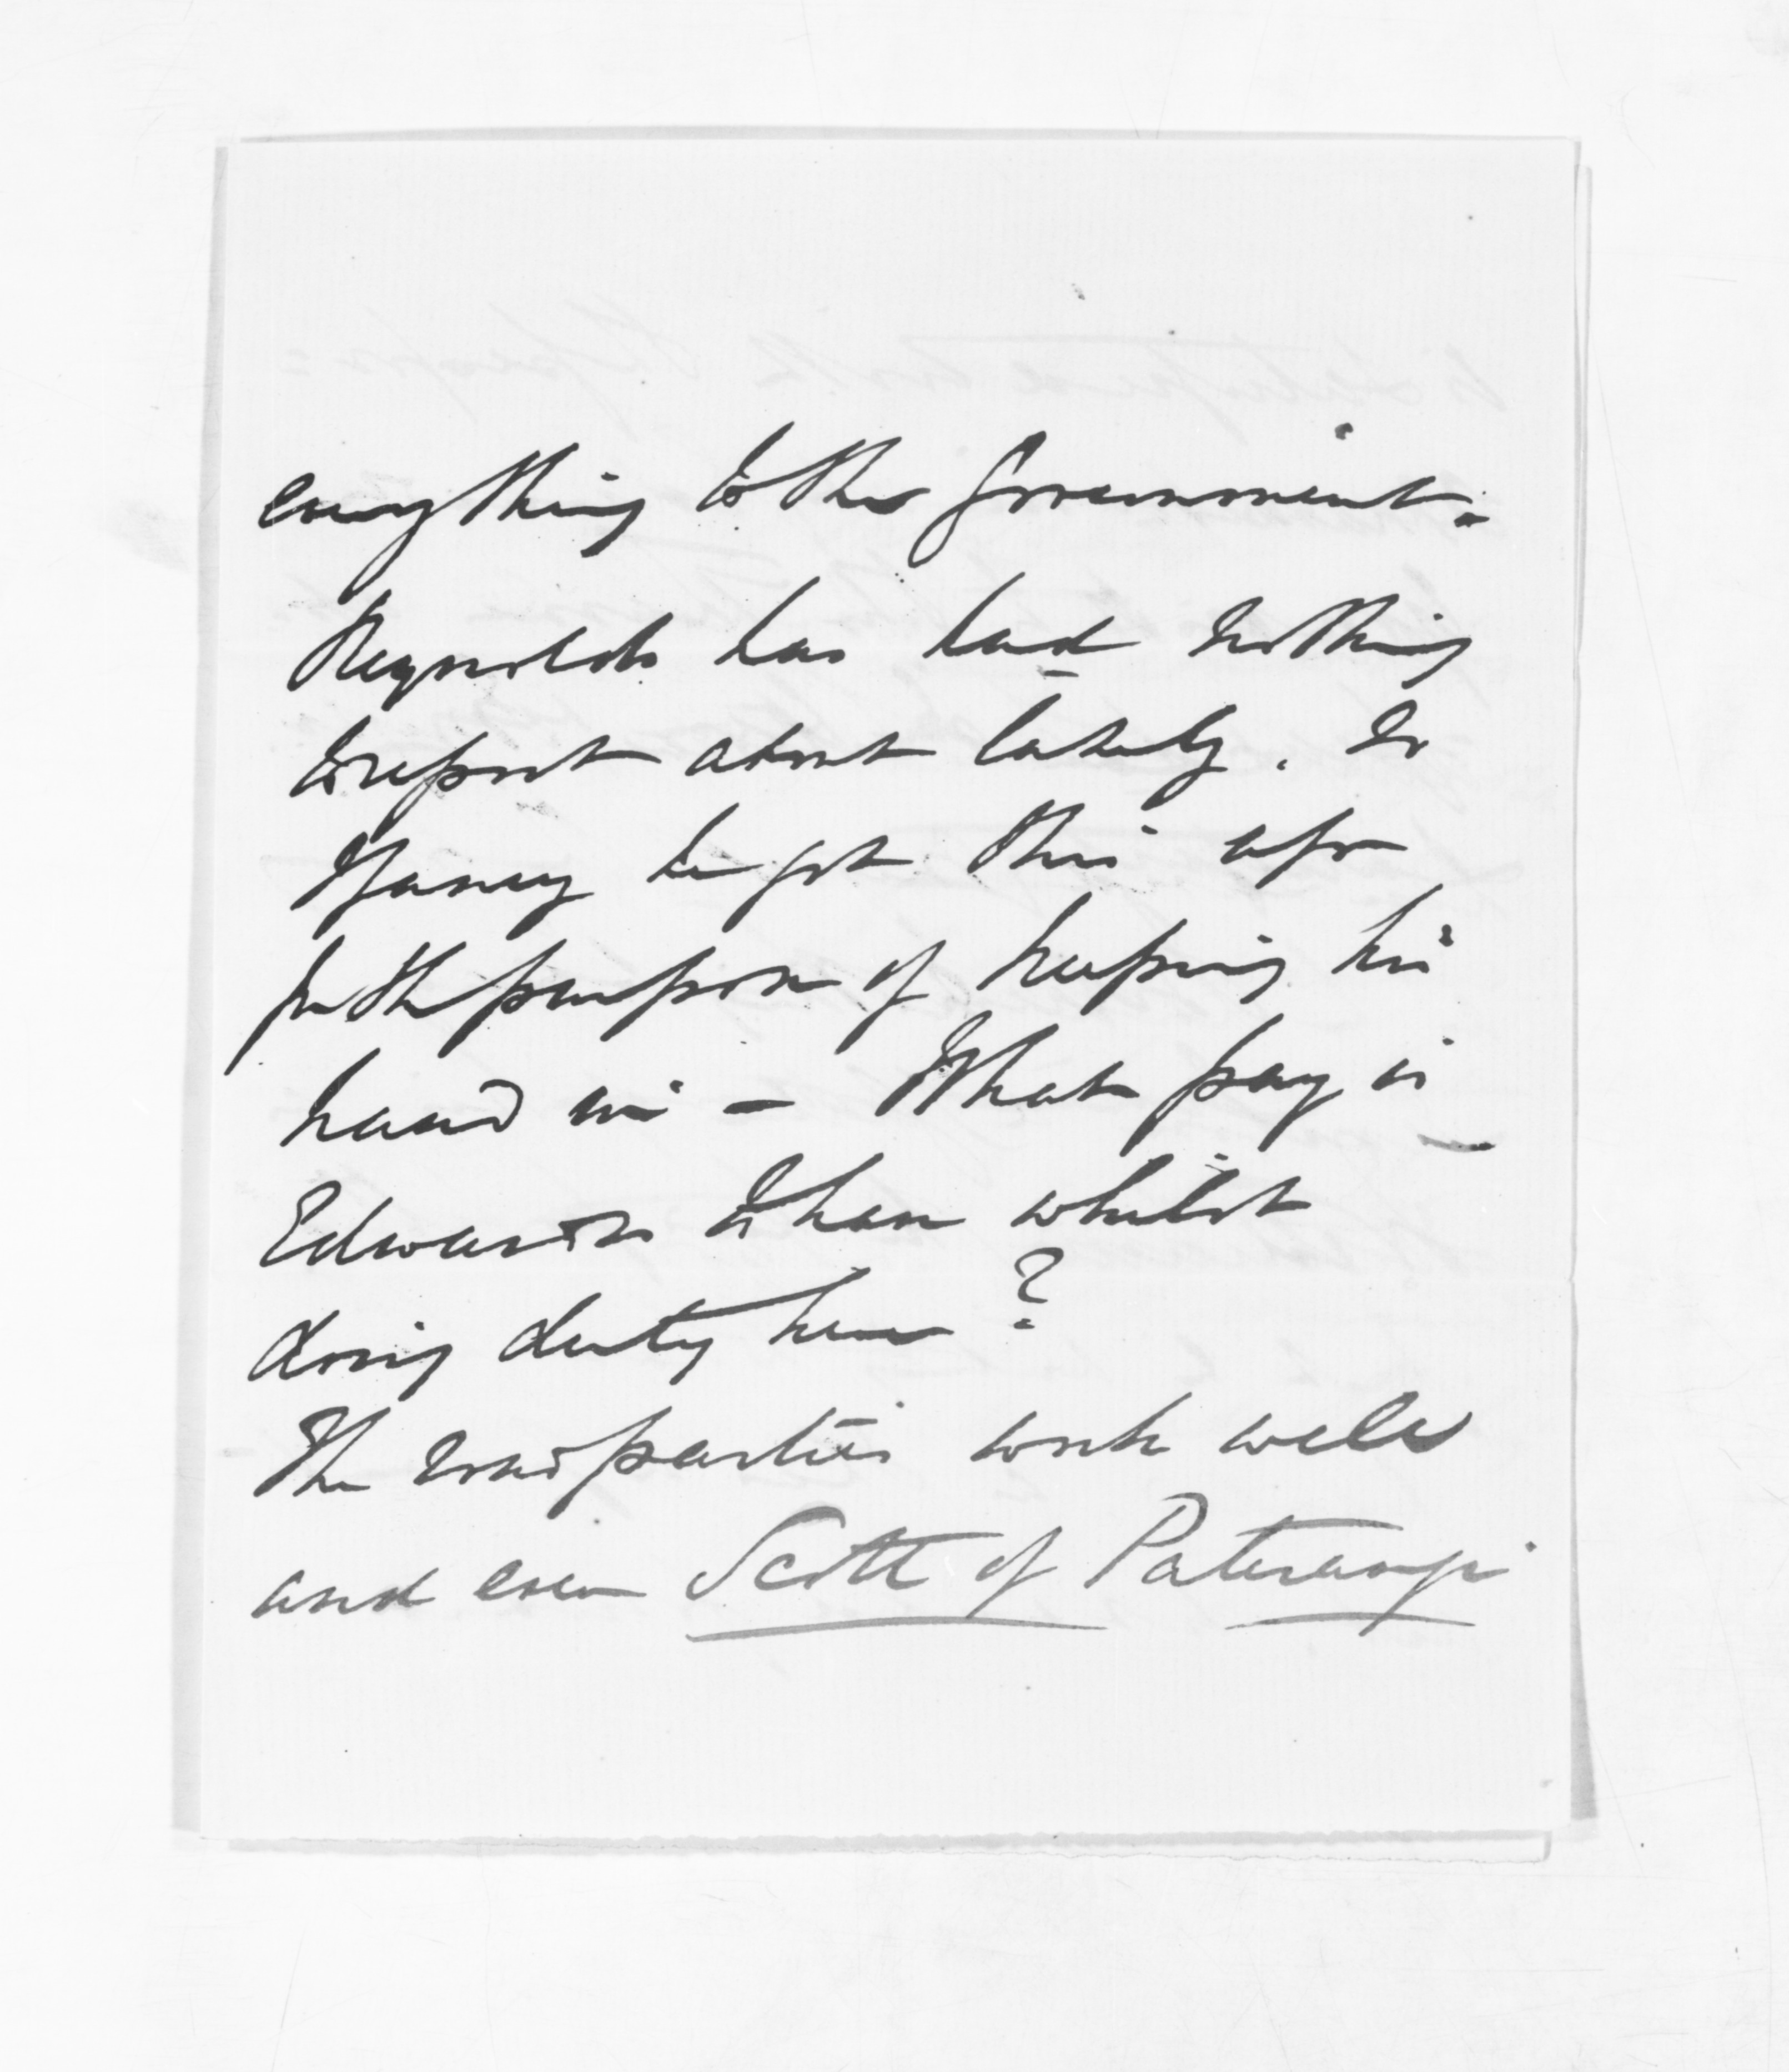 everything to the Government.
Reynolds has had nothing
to report about lately. So
I fancy he got this up
for the purpose of keeping his
hand in – What pay is
Edwards to have whilst
doing duty here?
The road parties work well
and even Scott of Paterangi